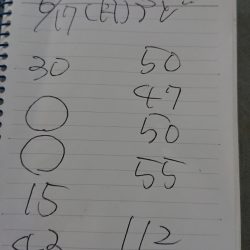 6/17(日)
30 50
47
○ 50
○ 55
15
43 112